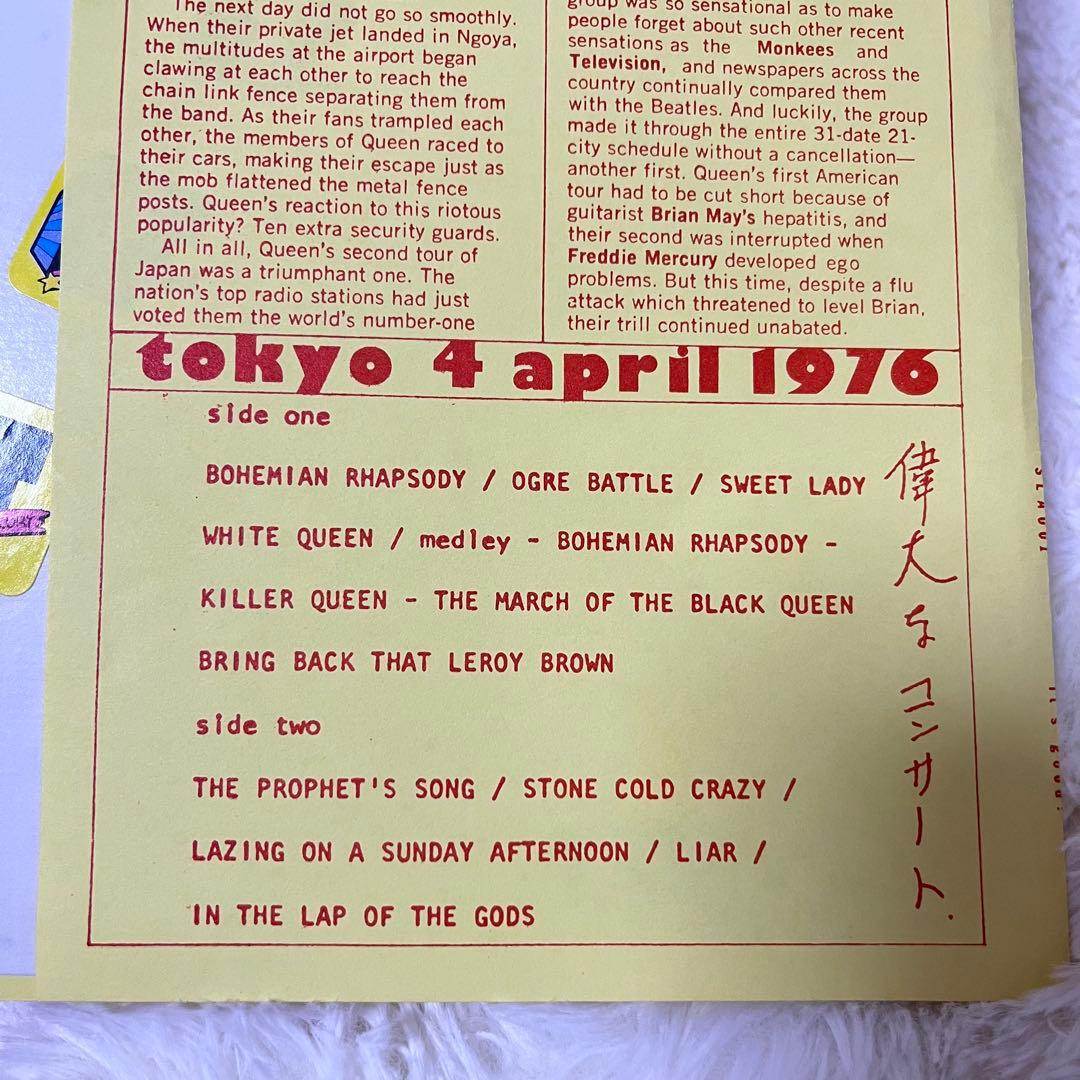 The next day did not go so smoothly.
When their private jet landed in Ngoya,
the multitudes at the airport began
clawing at each other to reach the
chain link fence separating them from
the band. As their fans trampled each
other, the members of Queen raced to
their cars, making their escape just as
the mob flattened the metal fence
posts. Queen's reaction to this riotous
popularity? Ten extra security guards.
All in all, Queen's second tour of
Japan was a triumphant one. The
nation's top radio stations had just
voted them the world's number-one
group was so sensational as to make
people forget about such other recent
sensations as the Monkees and
Television, and newspapers across the
country continually compared them
with the Beatles. And luckily, the group
made it through the entire 31-date 21-
city schedule without a cancellation—
another first. Queen's first American
tour had to be cut short because of
guitarist Brian May's hepatitis, and
their second was interrupted when
Freddie Mercury developed ego
problems. But this time, despite a flu
attack which threatened to level Brian,
their trill continued unabated.
tokyo 4 april 1976
side one
BOHEMIAN RHAPSODY / OGRE BATTLE / SWEET LADY
WHITE QUEEN / medley - BOHEMIAN RHAPSODY -
KILLER QUEEN - THE MARCH OF THE BLACK QUEEN
BRING BACK THAT LEROY BROWN
side two
THE PROPHET'S SONG / STONE COLD CRAZY /
LAZING ON A SUNDAY AFTERNOON / LIAR /
IN THE LAP OF THE GODS
偉大なコンサート.